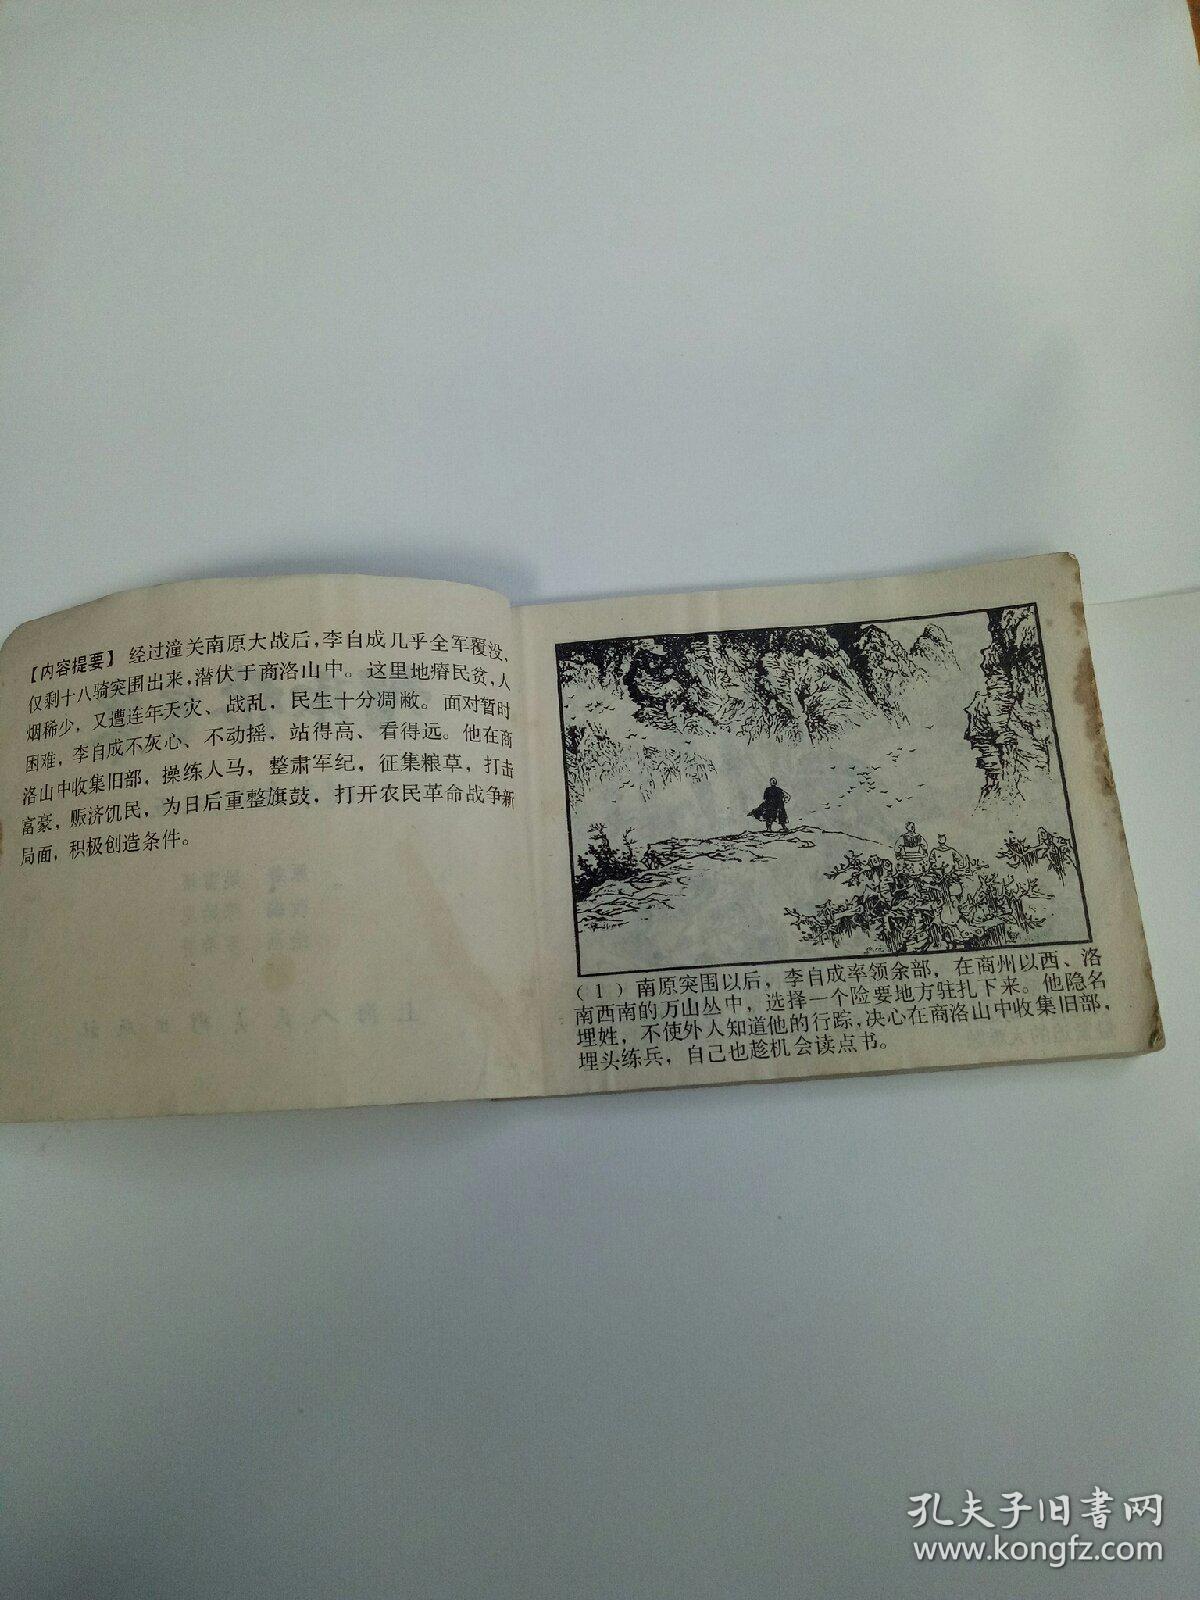 【内容提要】 经过潼关南原大战后，李自成几乎全军覆没，
仅剩十八骑突围出来，潜伏于商洛山中。这里地瘠民贫，人
烟稀少，又遭连年天灾、战乱，民生十分凋敝。面对暂时
困难，李自成不灰心、不动摇，站得高、看得远。他在商
洛山中收集旧部，操练人马，整肃军纪，征集粮草，打击
富豪，赈济饥民，为日后重整旗鼓，打开农民革命战争新
局面，积极创造条件。
（1）南原突围以后，李自成率领余部，在商州以西、洛
南西南的万山丛中，选择一个险要地方驻扎下来。他隐名
埋姓，不使外人知道他的行踪，决心在商洛山中收集旧部，
埋头练兵，自己也趁机会读点书。
孔夫子旧书网
www.kongfz.com